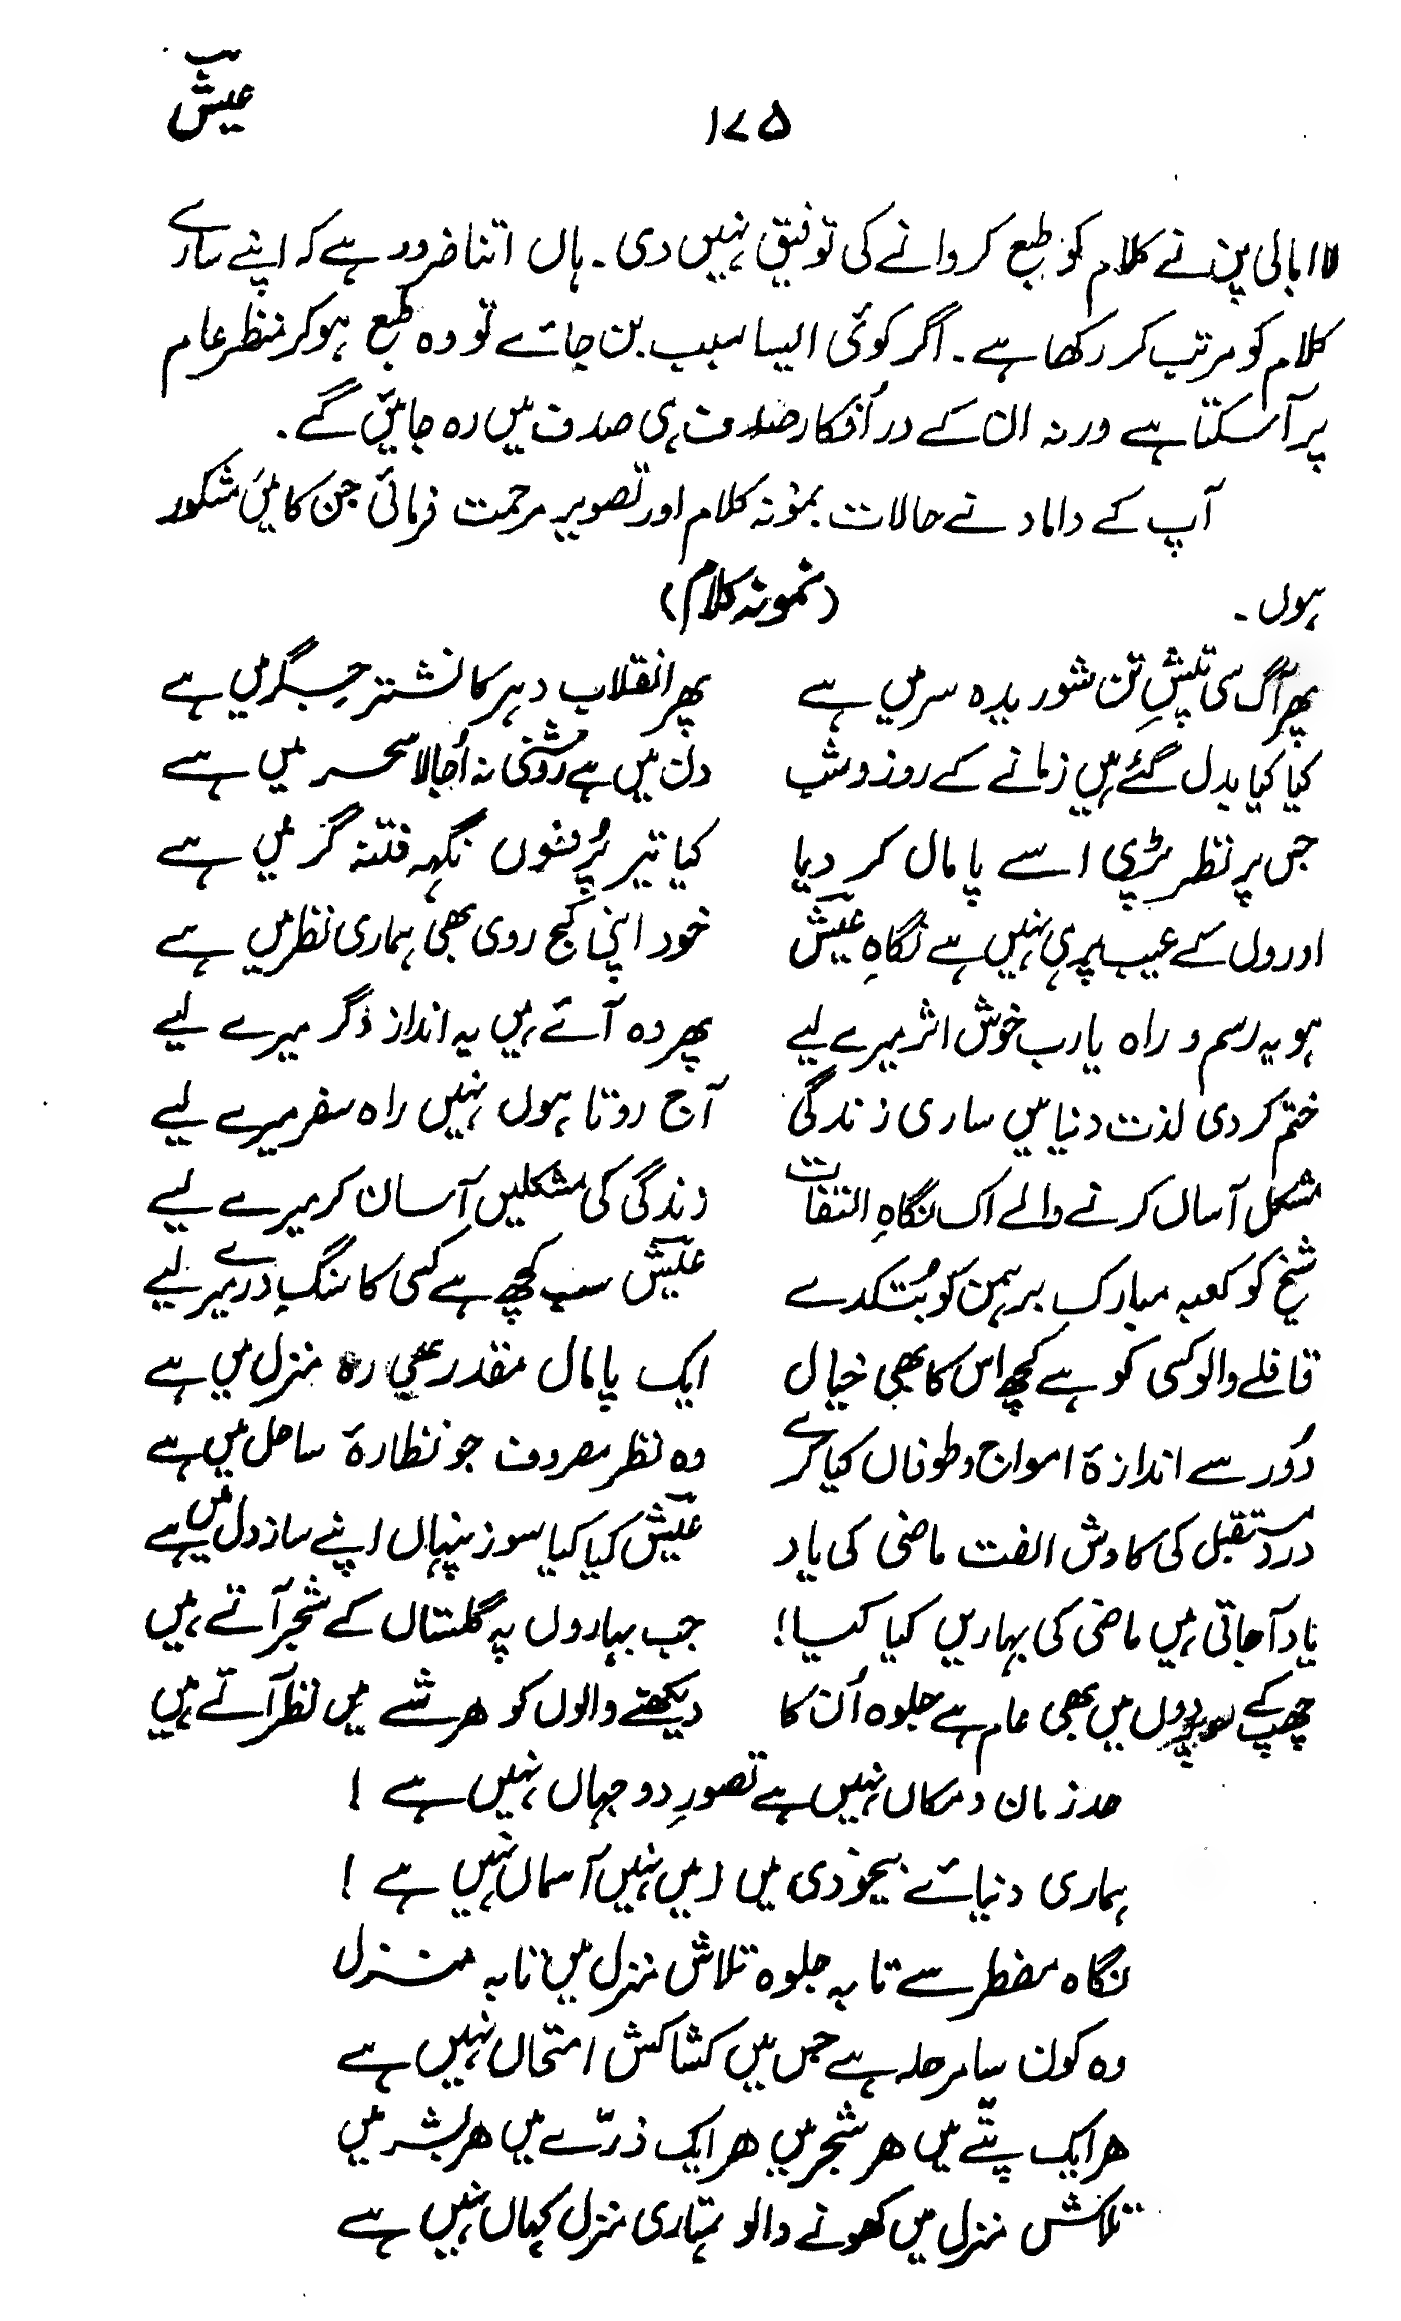 عیش
۱۷۵
لاابالی پن نے کلام کو طبع کروانے کی توفیق نہیں دی۔ ہاں اتنا ضرور ہے کہ اپنے سارے
کلام کو مرتب کر رکھا ہے۔ اگر کوئی ایسا سبب بن جائے تو وہ طبع ہو کر منظر عام
پر آسکتا ہے ورنہ ان کے در اُفکار صدف ہی صدف میں رہ جائیں گے۔
آپ کے داماد نے حالات نمونہ کلام اور تصویر مرحمت فرمائی جن کا میں شکور
ہوں۔
(نمونہ کلام)
پھر آگ سی تپشِ تن شوریدہ سر میں ہے پھر انقلاب دہر کا نشتر جگر میں ہے
کیا کیا بدل گئے ہیں زمانے کے روز و شب دن میں ہے روشنی نہ اُجالا سحر میں ہے
جس پر نظر پڑی اسے پامال کر دیا کیا تیر پُر فسوں نگہہ فتنہ گر میں ہے
اوروں کے عیب پر ہی نہیں ہے نگاہِ عیش خود اپنی کج روی بھی ہماری نظر میں ہے
ہو یہ رسم و راہ یارب خوش اثر میرے لیے پھر وہ آئے ہیں یہ انداز دگر میرے لیے
ختم کر دی لذت دنیا میں ساری زندگی آج روتا ہوں نہیں راہ سفر میرے لیے
مشکل آساں کرنے والے اک نگاہِ التفات زندگی کی مشکلیں آسان کر میرے لیے
شیخ کو کعبہ مبارک برہمن کو بُتکدے عیش سب کچھ ہے کسی کا سنگِ در میرے لیے
قافلے والو کسی کو ہے کچھ اس کا بھی خیال ایک پامال مقدر بھی رہ منزل میں ہے
دُور سے اندازۂ امواج و طوفاں کیا کرے وہ نظر مصروف جو نظارۂ ساحل میں ہے
درد مستقبل کی کاوش الفت ماضی کی یاد عیش کیا کیا سوز پنہاں اپنے ساز دل میں ہے
یاد آجاتی ہیں ماضی کی بہاریں کیا کیا! جب بہاروں پہ گلستاں کے شجر آتے ہیں
چھپ کے سو پردوں میں بھی عام ہے جلوہ اُن کا دیکھنے والوں کو ھر شے میں نظر آتے ہیں
حد زمان و مکاں نہیں ہے تصورِ دو جہاں نہیں ہے!
ہماری دنیائے بیخودی میں زمیں نہیں آسماں نہیں ہے!
نگاہ مضطر سے تا بہ جلوہ تلاش منزل میں تا بہ منزل
وہ کون سا مرحلہ ہے جس میں کشاکش امتحاں نہیں ہے
ھر ایک پتّے میں ھر شجر میں ھر ایک ذرّے میں ھر بشر میں
تلاش منزل میں کھونے والو تمہاری منزل کہاں نہیں ہے